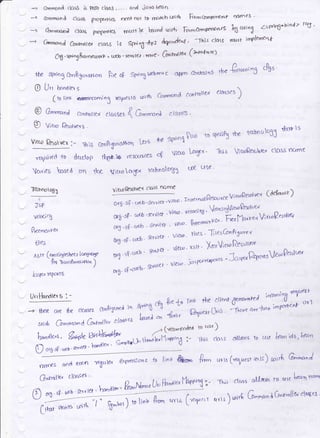 → Command class is POJO class..... and Java bean
→ command class properties need not to match with Formcomponent names.
→ Command class properties must be bound with Formcomponents by using <spring:bind> tag.
→ Command Controller class is Spring Api dependent. This class must implement
Org.springframework.web.servlet.mvc.Controller (Interface)
the spring Configuration File of Spring web mvc appn contains the following cfgs
① Url handlers
(to link incoming requests with Command controller classes)
② Command controller classes & Command classes.
③ View Resolvers.
View Resolver :- This Configuration lets the spring to specify the technology that is
required to develop the resources of View Layer. This ViewResolver class name
Varies based on the View Layer technology we use.
Technology ViewResolver class name
JSP org.sf.web.servlet.view.InternalResourceViewResolver (default)
velocity org.sf.web.servlet.view.velocity.VelocityViewResolver
Freemarker org.sf.web.servlet.view.freemarker.FreeMarkerViewResolver
tiles org.sf.web.servlet.view.tiles.TilesConfigurer
XSLT (extensible stylesheet language for Transformation) org.sf.web.servlet.view.xslt.XsltViewResolver
Jasper reports org.sf.web.servlet.view.jasperreports.JasperReportsViewResolver
UrlHandlers :-
→ these are the classes configured in spring cfg file to link the client generated incoming request
with Command Controller classes based on their Request Urls. There are two important url
handlers. (recommended to use)
① org.sf.web.servlet.handler.SimpleUrlHandlerMapping :- This class allows to use bean ids, bean
names and even regular expressions to link from urls (request urls) with Command
Controller classes.
② org.sf.web.servlet.handler.BeanNameUrlHandlerMapping :- This class allows to use bean name
(that starts with "/" symbol) to link from urls (request urls) with Command Controller classes.